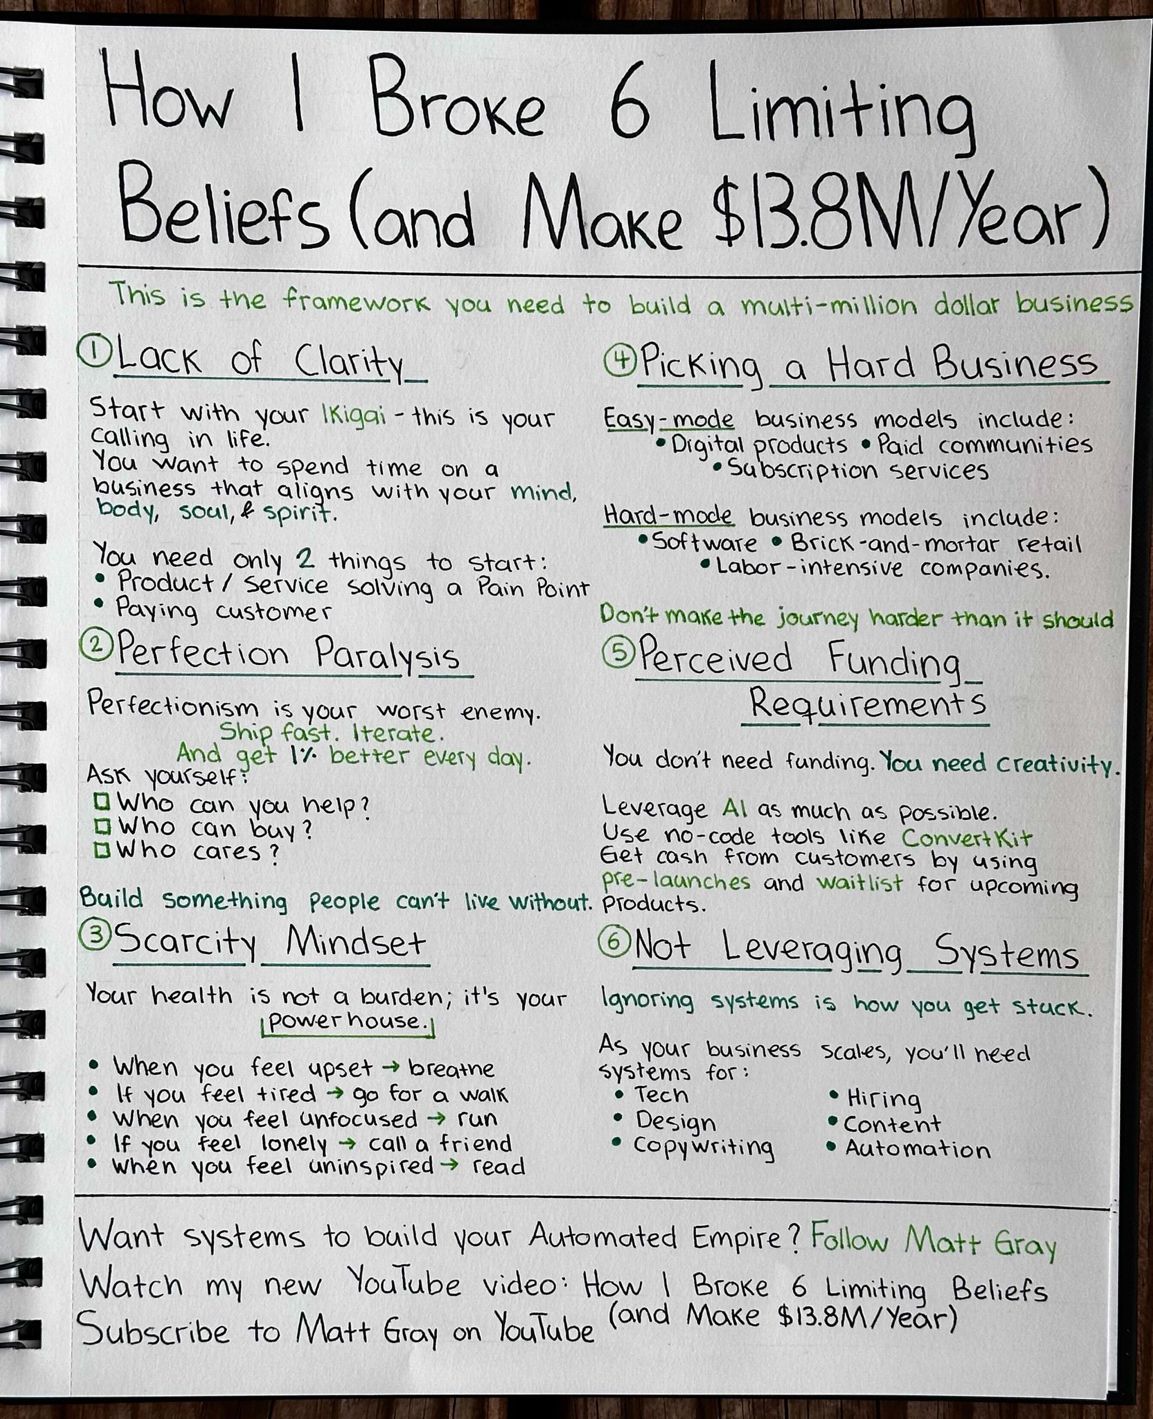 How I Broke 6 Limiting
Beliefs (and Make $13.8M/Year)
This is the framework you need to build a multi-million dollar business
① Lack of Clarity
Start with your Ikigai - this is your
calling in life.
You want to spend time on a
business that aligns with your mind,
body, soul, & spirit.
You need only 2 things to start:
• Product / Service solving a Pain Point
• Paying customer
② Perfection Paralysis
Perfectionism is your worst enemy.
Ship fast. Iterate.
And get 1% better every day.
Ask yourself:
☐ Who can you help?
☐ Who can buy?
☐ Who cares?
Build something people can't live without.
③ Scarcity Mindset
Your health is not a burden; it's your
powerhouse.
• When you feel upset → breathe
• If you feel tired → go for a walk
• When you feel unfocused → run
• If you feel lonely → call a friend
• When you feel uninspired → read
④ Picking a Hard Business
Easy-mode business models include:
• Digital products • Paid communities
• Subscription services
Hard-mode business models include:
• Software • Brick-and-mortar retail
• Labor-intensive companies.
Don't make the journey harder than it should
⑤ Perceived Funding
Requirements
You don't need funding. You need creativity.
Leverage AI as much as possible.
Use no-code tools like ConvertKit
Get cash from customers by using
pre-launches and waitlist for upcoming
products.
⑥ Not Leveraging Systems
Ignoring systems is how you get stuck.
As your business scales, you'll need
systems for:
• Tech
• Design
• Copywriting
• Hiring
• Content
• Automation
Want systems to build your Automated Empire? Follow Matt Gray
Watch my new YouTube video: How I Broke 6 Limiting Beliefs
(and Make $13.8M/Year)
Subscribe to Matt Gray on YouTube